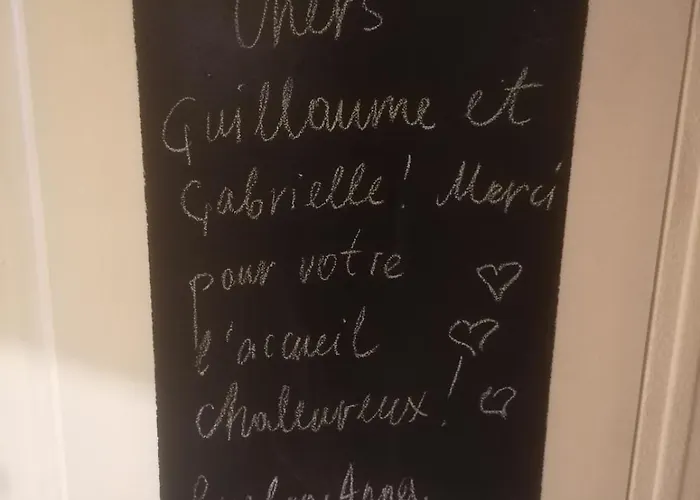 Chers
Guillaume et
Gabrielle! Merci
pour votre
l'accueil
chaleureux!